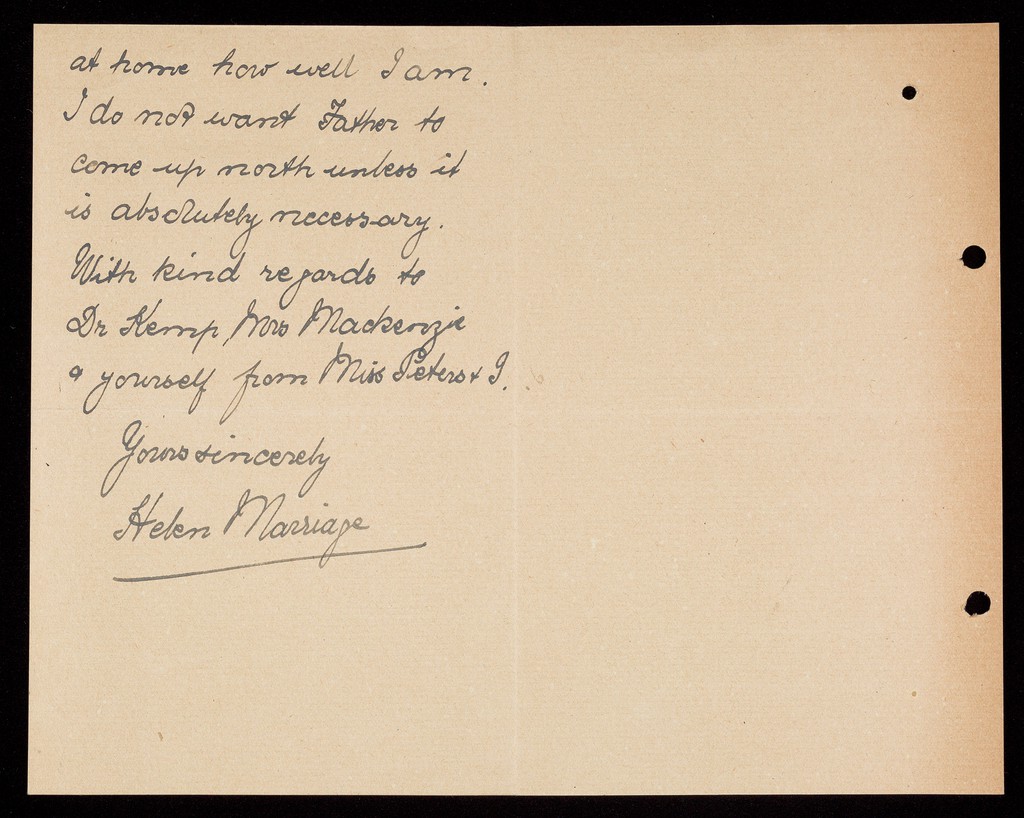 at home how well I am.
I do not want Father to
come up north unless it
is absolutely necessary.
With kind regards to
Dr Kemp, Mrs Mackenzie
& yourself from Miss Peters & I.
Yours sincerely
Helen Marriage